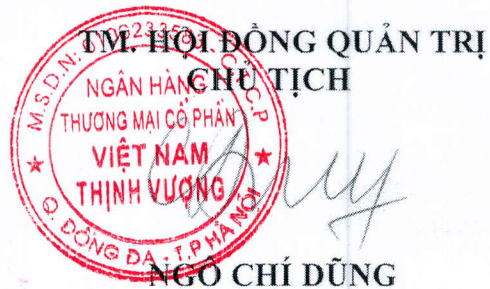 TM. HỘI ĐỒNG QUẢN TRỊ
CHỦ TỊCH
NGÂN HÀNG
THƯƠNG MẠI CỔ PHẦN
VIỆT NAM
THỊNH VƯỢNG
Q. ĐỐNG ĐA - T.P HÀ NỘI
NGÔ CHÍ DŨNG